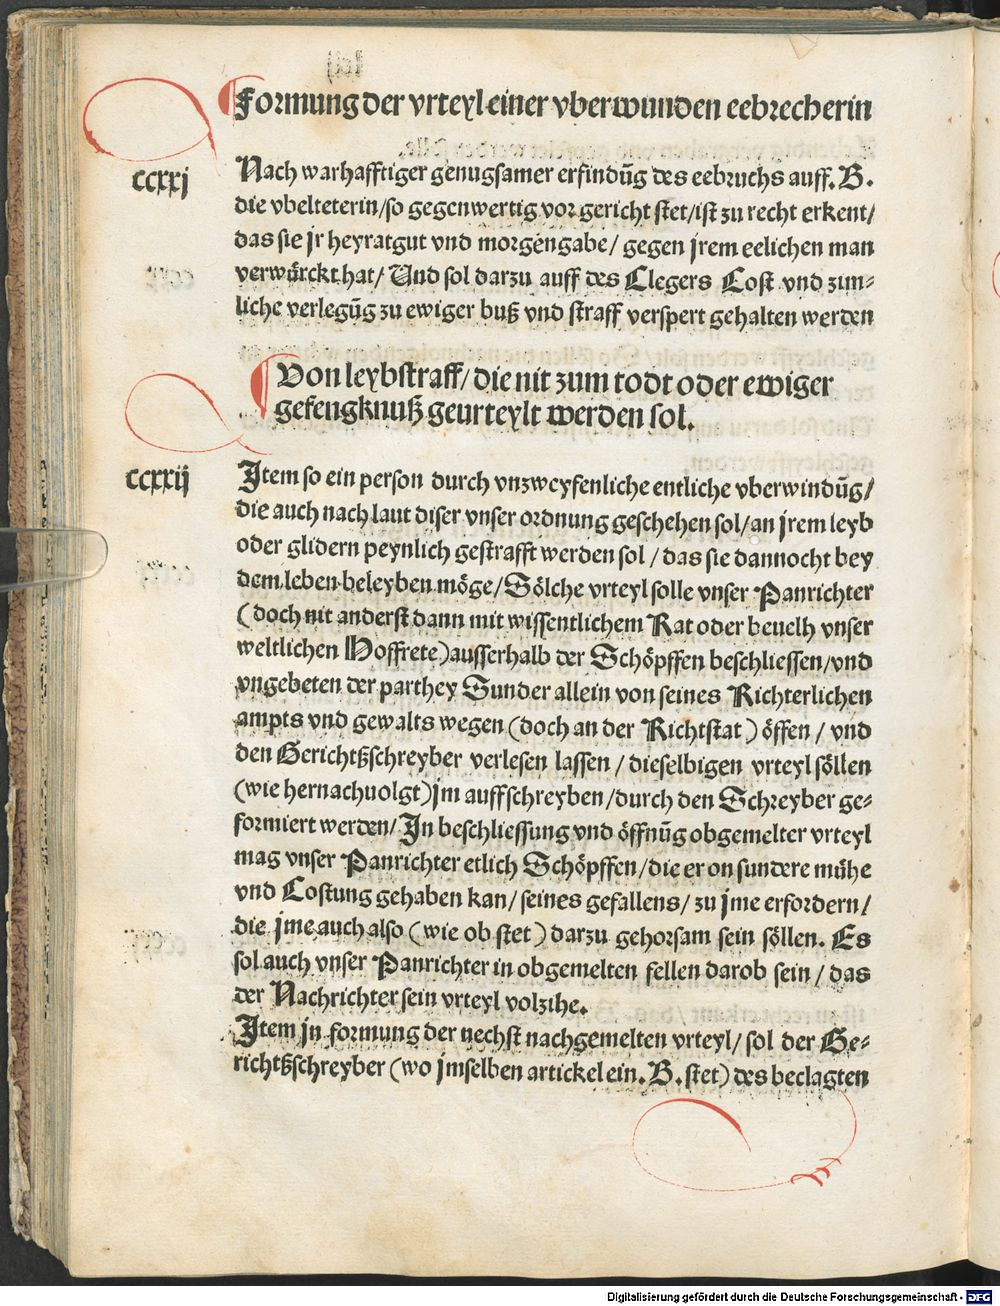 Formung der vrteyl einer vberwunden eebrecherin
ccxxj
Nach warhafftiger genugsamer erfindūg des eebruchs auff. B.
die vbelteterin/so gegenwertig vor gericht stet/ist zu recht erkent/
das sie jr heyratgut vnd morgengabe/ gegen jrem eelichen man
verwürckt hat/ Und sol darzu auff des Clegers Cost vnd zim⸗
liche verlegūg zu ewiger buß vnd straff verspert gehalten werden
Von leybstraff/ die nit zum todt oder ewiger
gefengknuß geurteylt werden sol.
ccxxij
Item so ein person durch vnzweyfenliche entliche vberwindūg/
die auch nach laut diser vnser ordnung geschehen sol/an jrem leyb
oder glidern peynlich gestrafft werden sol / das sie dannocht bey
dem leben beleyben möge/ Sölche vrteyl solle vnser Panrichter
(doch nit anderst dann mit wissentlichem Rat oder beuelh vnser
weltlichen Hoffrete)ausserhalb der Schöpffen beschliessen/vnd
vngebeten der parthey Sunder allein von seines Richterlichen
ampts vnd gewalts wegen (doch an der Richtstat) öffen / vnd
den Gerichtßschreyber verlesen lassen / dieselbigen vrteyl söllen
(wie hernachuolgt)jm auffschreyben/durch den Schreyber ge⸗
formiert werden/ In beschliessung vnd öffnūg obgemelter vrteyl
mag vnser Panrichter etlich Schöpffen/die er on sundere mühe
vnd Costung gehaben kan/ seines gefallens/ zu jme erfordern/
die jme auch also (wie ob stet) darzu gehorsam sein söllen. Es
sol auch vnser Panrichter in obgemelten fellen darob sein / das
der Nachrichter sein vrteyl volzihe.
Item jn formung der nechst nachgemelten vrteyl/ sol der Ge⸗
richtßschreyber (wo jmselben artickel ein. B. stet) des beclagten
Digitalisierung gefördert durch die Deutsche Forschungsgemeinschaft - DFG